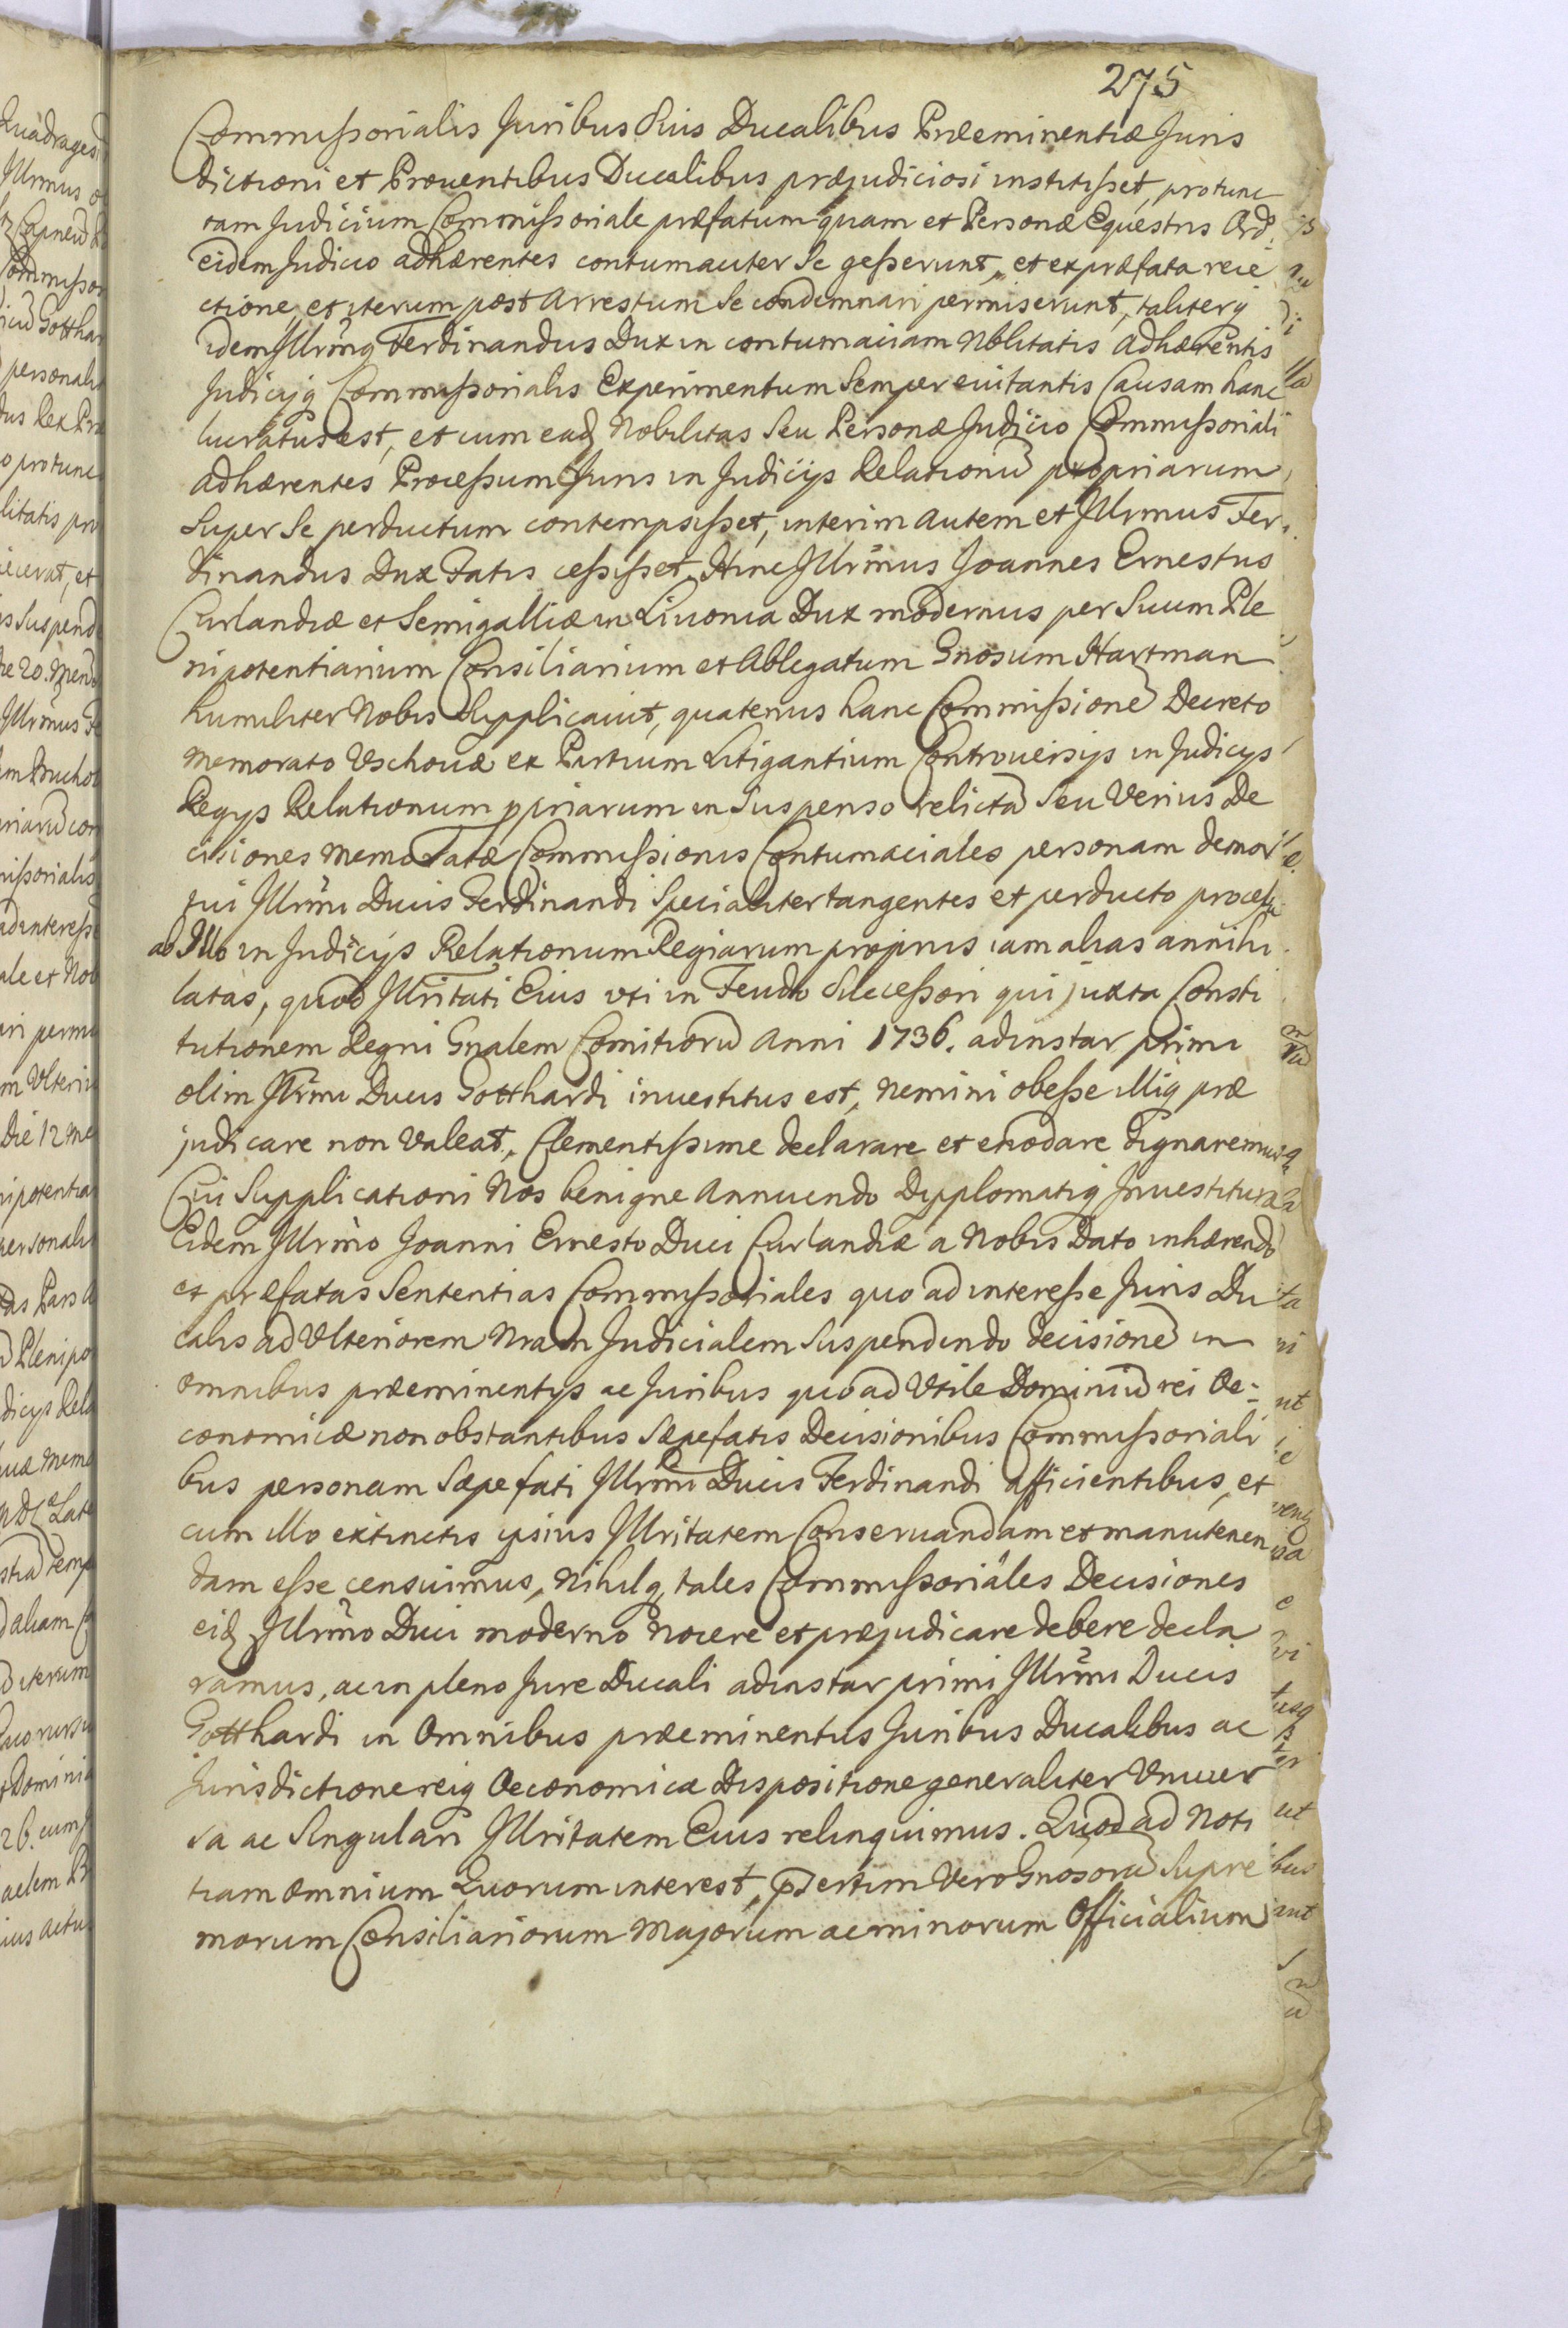 275
Commissorialis Juribus Suis Ducalibus Præeminentiæ Juris
dictioni et Proventibus Ducalibus præjudiciosi institisset, protunc
tam Judicium Commissoriale præfatum quam et Personæ Equestris Ord:
eidem Judicio adhærentes contumaciter Se gesserunt, et ex præfata reie
ctione, et iterum post Arrestum Se condemnari permiserunt, taliterq
idem Illrm̃q Ferdinandus Dux in contumaciam Nblitatis adhærentis
Judicijq Commissorialis Experimentum Semper euitantis Causam hanc
lucratus est, et cum eadẽ Nobilitas Seu Personæ Judicio Commissoriali
adhærentes Processum Juris in Judicijs Relationũ propriarum
Super Se perductum contempsisset, interim autem et Illrmus Fer
dinandus Dux Fatis cessisset. Hinc Illrm̃us Joannes Ernestus
Curlandiæ et Semigalliæ in Liuonia Dux modernus per Suum Ple
nipotentiarium Consiliarium et Ablegatum Gnosum Hartman
humiliter Nobis Supplicauit, quatenus hanc Commissionẽ Decreto
memorato Vschouæ ex Partium Litigantium Controuersijs in Judicijs
Regijs Relationum ppriarum in Suspenso relictã Seu Verius De
cisiones memoratæ Commissionis Contumaciales personam demor
tui Illrm̃i Ducis Ferdinandi Specialiter tangentes et perducto processu
ab Illo in Judicijs Relationum Regiarum proprijs iam alias annihi
latas, quod Illritati Eius vti in Feudo Successori qui juxta Consti
tutionem Regni Gnalem Comitiorũ Anni 1736. adinstar primi
olim Illrm̃i Ducis Gotthardi inuestitus est, nemini obesse illiq præ
judicare non Valeat, Clementissime declarare et enodare dignaremur
Cui Supplicationi Nos benigne Annuendo Dyplomatiq Inuestituræ
Eidem Illrm̃o Joanni Ernesto Duci Curlandiæ a Nobis Dato inhærendo
et præfatas Sententias Commissoriales quo ad interesse Juris Du
calis ad Vlteriorem Nram Judicialem Suspendendo decisionẽ in
omnibus præeminentijs ac Juribus quo ad Vtile Dominiũ rei Oe-
conomicæ non obstantibus Sæpefatis Decisionibus Commissoriali
bus personam Sæpefati Illrm̃i Ducis Ferdinandi afficientibus, et
cum illo extinctis ipsius Illritatem Conseruandam et manutenen
dam esse censuimus, Nihilq tales Commissoriales Decisiones
eidẽ Illrm̃o Duci moderno Nocere et præjudicare debere decla
ramus, ac in pleno Jure Ducali adinstar primi Illrm̃i Ducis
Gotthardi in Omnibus præeminentijs Juribus Ducalibus ac
Jurisdictione reiq Oeconomicæ Dispositione generaliter Vniuer
sa ac Singulari Illritatem Eius relinquimus. Quod ad Noti
tiam omnium Quorum interest, pсertim Vero Gnosorũ Supre
morum Consiliariorum Majorum ac minorum Officialium